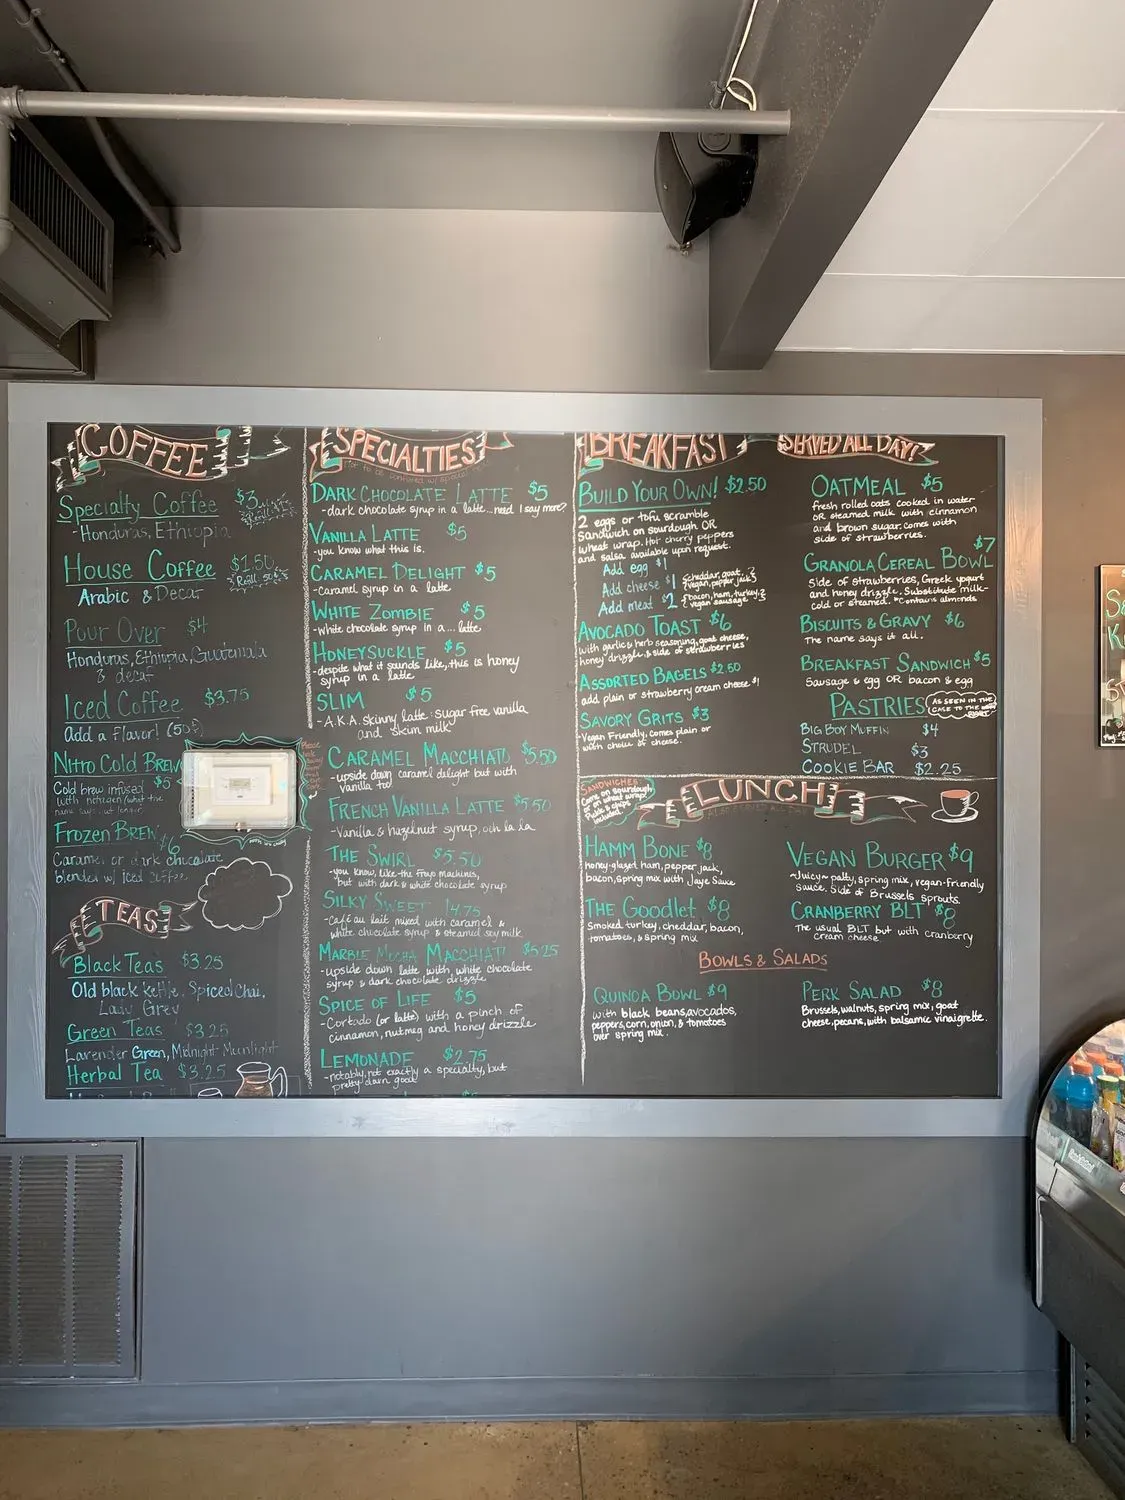 COFFEE
Specialty Coffee $3
-Honduras, Ethiopia
House Coffee $1.50
Refill 50¢
Arabic & Decaf
Pour Over $4
Honduras, Ethiopia, Guatemala
& decaf
Iced Coffee $3.75
Add a Flavor! (50¢)
Nitro Cold Brew
$5
Cold brew infused
with nitrogen/what the
Frozen Brew $6
Caramel or dark chocolate
blended w/ iced coffee
TEAS
Black Teas $3.25
Old black kettle, Spiced Chai,
Lady Grey
Green Teas $3.25
Lavender Green, Midnight Moonlight
Herbal Tea $3.25
SPECIALTIES
not to be confused w/
DARK CHOCOLATE LATTE $5
-dark chocolate syrup in a latte...need I say more?
VANILLA LATTE $5
-you know what this is.
CARAMEL DELIGHT $5
-Caramel syrup in a latte
WHITE ZOMBIE $5
-white chocolate syrup in a... latte
HONEYSUCKLE $5
-despite what it sounds like, this is honey
syrup in a latte
SLIM $5
-A.K.A. skinny latte: sugar free vanilla
and skim milk
CARAMEL MACCHIATO $5.50
-upside down caramel delight but with
vanilla too!
FRENCH VANILLA LATTE $5.50
-Vanilla & hazelnut syrup, ooh la la
THE SWIRL $5.50
-you know, like the froyo machines,
but with dark & white chocolate syrup
SILKY SWEET $4.75
-Café au lait mixed with caramel &
white chocolate syrup & steamed soy milk
MARBLE MOCHA MACCHIATO $5.25
-upside down latte with white chocolate
syrup & dark chocolate drizzle
SPICE OF LIFE $5
-Cortado (or latte) with a pinch of
cinnamon, nutmeg and honey drizzle
LEMONADE $2.75
-notably, not exactly a specialty, but
pretty darn good
BREAKFAST
SERVED ALL DAY!
BUILD YOUR OWN! $2.50
2 eggs or tofu scramble
Sandwich on sourdough OR
wheat wrap. Hot cherry peppers
and salsa available upon request.
Add egg $1
Add cheese $1 {cheddar, goat,
vegan, pepper jack}
Add meat $2 {bacon, ham, turkey,
vegan sausage}
AVOCADO TOAST $6
with garlic & herb seasoning, goat cheese,
honey drizzle, & side of strawberries
ASSORTED BAGELS $2.50
add plain or strawberry cream cheese $1
SAVORY GRITS $3
-Vegan Friendly, comes plain or
with choice of cheese.
OATMEAL $5
fresh rolled oats cooked in water
OR steamed milk with cinnamon
and brown sugar. Comes with
side of strawberries.
GRANOLA CEREAL BOWL $7
Side of strawberries, Greek yogurt
and honey drizzle. Substitute milk-
cold or steamed. *Contains almonds
BISCUITS & GRAVY $6
The name says it all.
BREAKFAST SANDWICH $5
Sausage & egg OR bacon & egg
PASTRIES
AS SEEN IN THE
CASE TO THE
RIGHT
BIG BOY MUFFIN $4
STRUDEL $3
COOKIE BAR $2.25
SANDWICHES:
Come on sourdough
or on wheat wrap.
Pickle & chips
included.
LUNCH
HAMM BONE $8
honey-glazed ham, pepper jack,
bacon, spring mix with Jaye Sauce
THE GOODLET $8
Smoked turkey, cheddar, bacon,
tomatoes, & spring mix
VEGAN BURGER $9
~Juicy~ patty, spring mix, vegan-friendly
sauce. Side of Brussels sprouts.
CRANBERRY BLT $8
The usual BLT but with cranberry
cream cheese
BOWLS & SALADS
QUINOA BOWL $9
with black beans, avocados,
peppers, corn, onion, & tomatoes
over spring mix.
PERK SALAD $8
Brussels, walnuts, spring mix, goat
cheese, pecans, with balsamic vinaigrette.